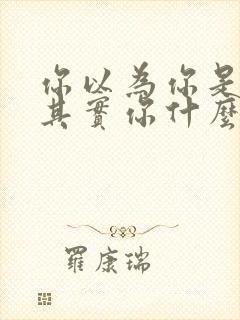 你以為你是
其實你什麼
羅康瑞